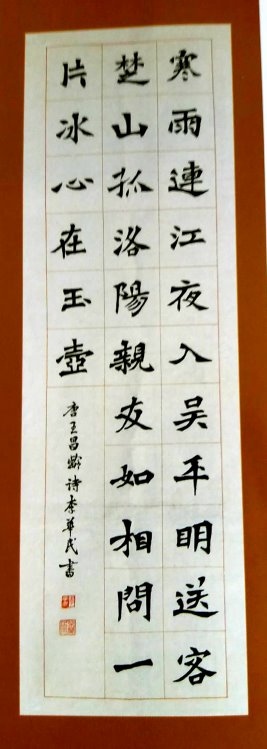 寒雨連江夜入吴平明送客
楚山孤洛陽親友如相問一
片冰心在玉壺
唐王昌龄诗李華民書